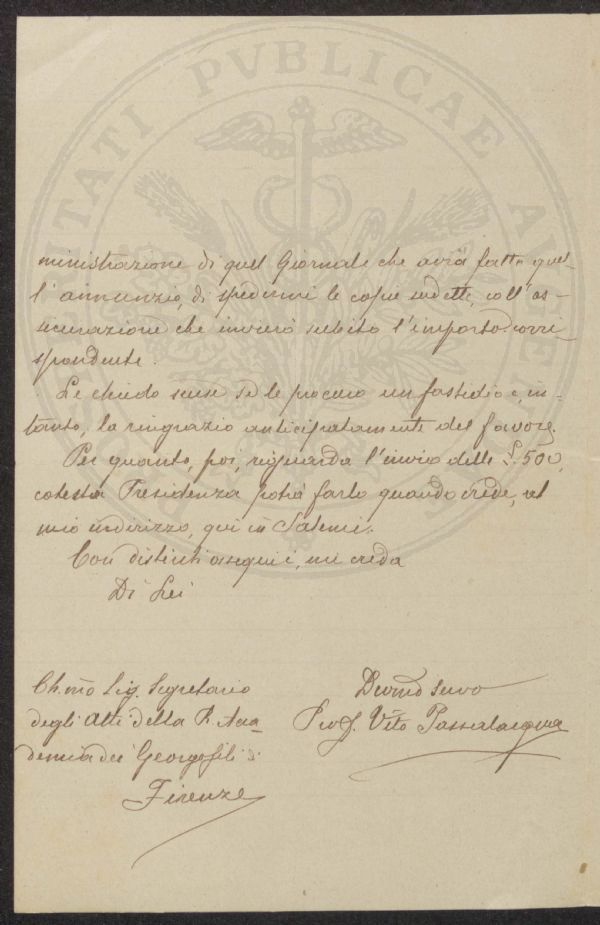 PROSPERITATI PVBLICAE AVGENDAE
ministrazione di quel Giornale che avrà fatto quel-
l'annunzio, di spedirmi le copie sudette, coll'as-
sicurazione che invierò subito l'importo corri-
spondente.
Le chiedo scuse se le procuro un fastidio e, in-
tanto, la ringrazio anticipatamente del favore.
Per quanto, poi, riguarda l'invio delle £. 500,
cotesta Presidenza potrà farlo quando crede, al
mio indirizzo, qui in Salemi.
Con distinti ossequii, mi creda
Di Lei
Ch.mo Sig. Segretario
degli Atti della R. Acca-
demia dei Georgofili di
Firenze
Dev.mo servo
Prof. Vito Passalacqua